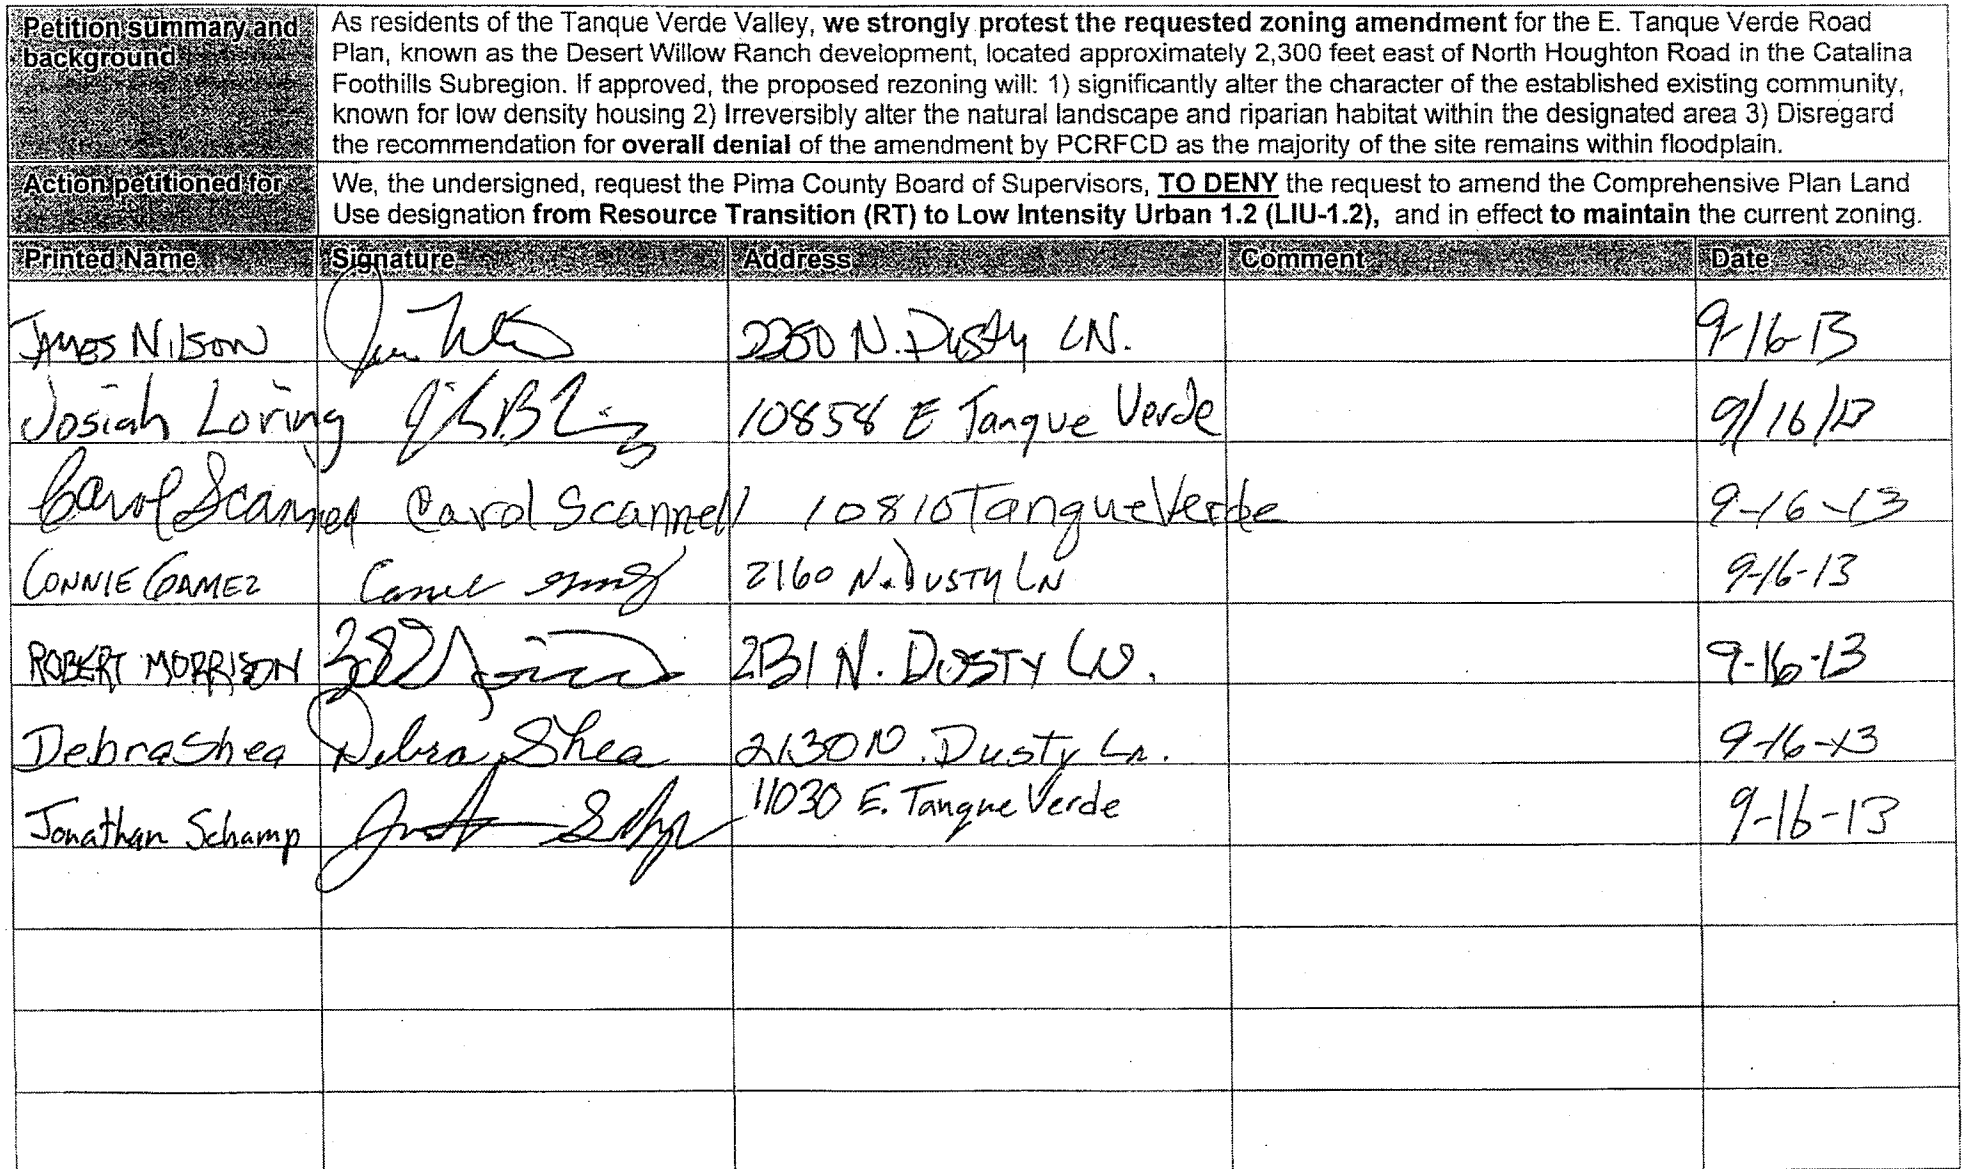 Petition summary and background
As residents of the Tanque Verde Valley, we strongly protest the requested zoning amendment for the E. Tanque Verde Road
Plan, known as the Desert Willow Ranch development, located approximately 2,300 feet east of North Houghton Road in the Catalina
Foothills Subregion. If approved, the proposed rezoning will: 1) significantly alter the character of the established existing community,
known for low density housing 2) Irreversibly alter the natural landscape and riparian habitat within the designated area 3) Disregard
the recommendation for overall denial of the amendment by PCRFCD as the majority of the site remains within floodplain.
Action petitioned for
We, the undersigned, request the Pima County Board of Supervisors, TO DENY the request to amend the Comprehensive Plan Land
Use designation from Resource Transition (RT) to Low Intensity Urban 1.2 (LIU-1.2), and in effect to maintain the current zoning.
Printed Name Signature Address Comment Date
JAMES NILSON 2250 N. Dusty LN. 9-16-13
Josiah Loring 10858 E Tanque Verde 9/16/13
Carol Scannell Carol Scannell 10810 Tanque Verde 9-16-13
CONNIE GAMEZ 2160 N. DUSTY LN 9-16-13
ROBERT MORRISON N. DUSTY LN. 9-16-13
Debra Shea Debra Shea 2130 N. Dusty Ln. 9-16-13
Jonathan Schamp 11030 E. Tanque Verde 9-16-13